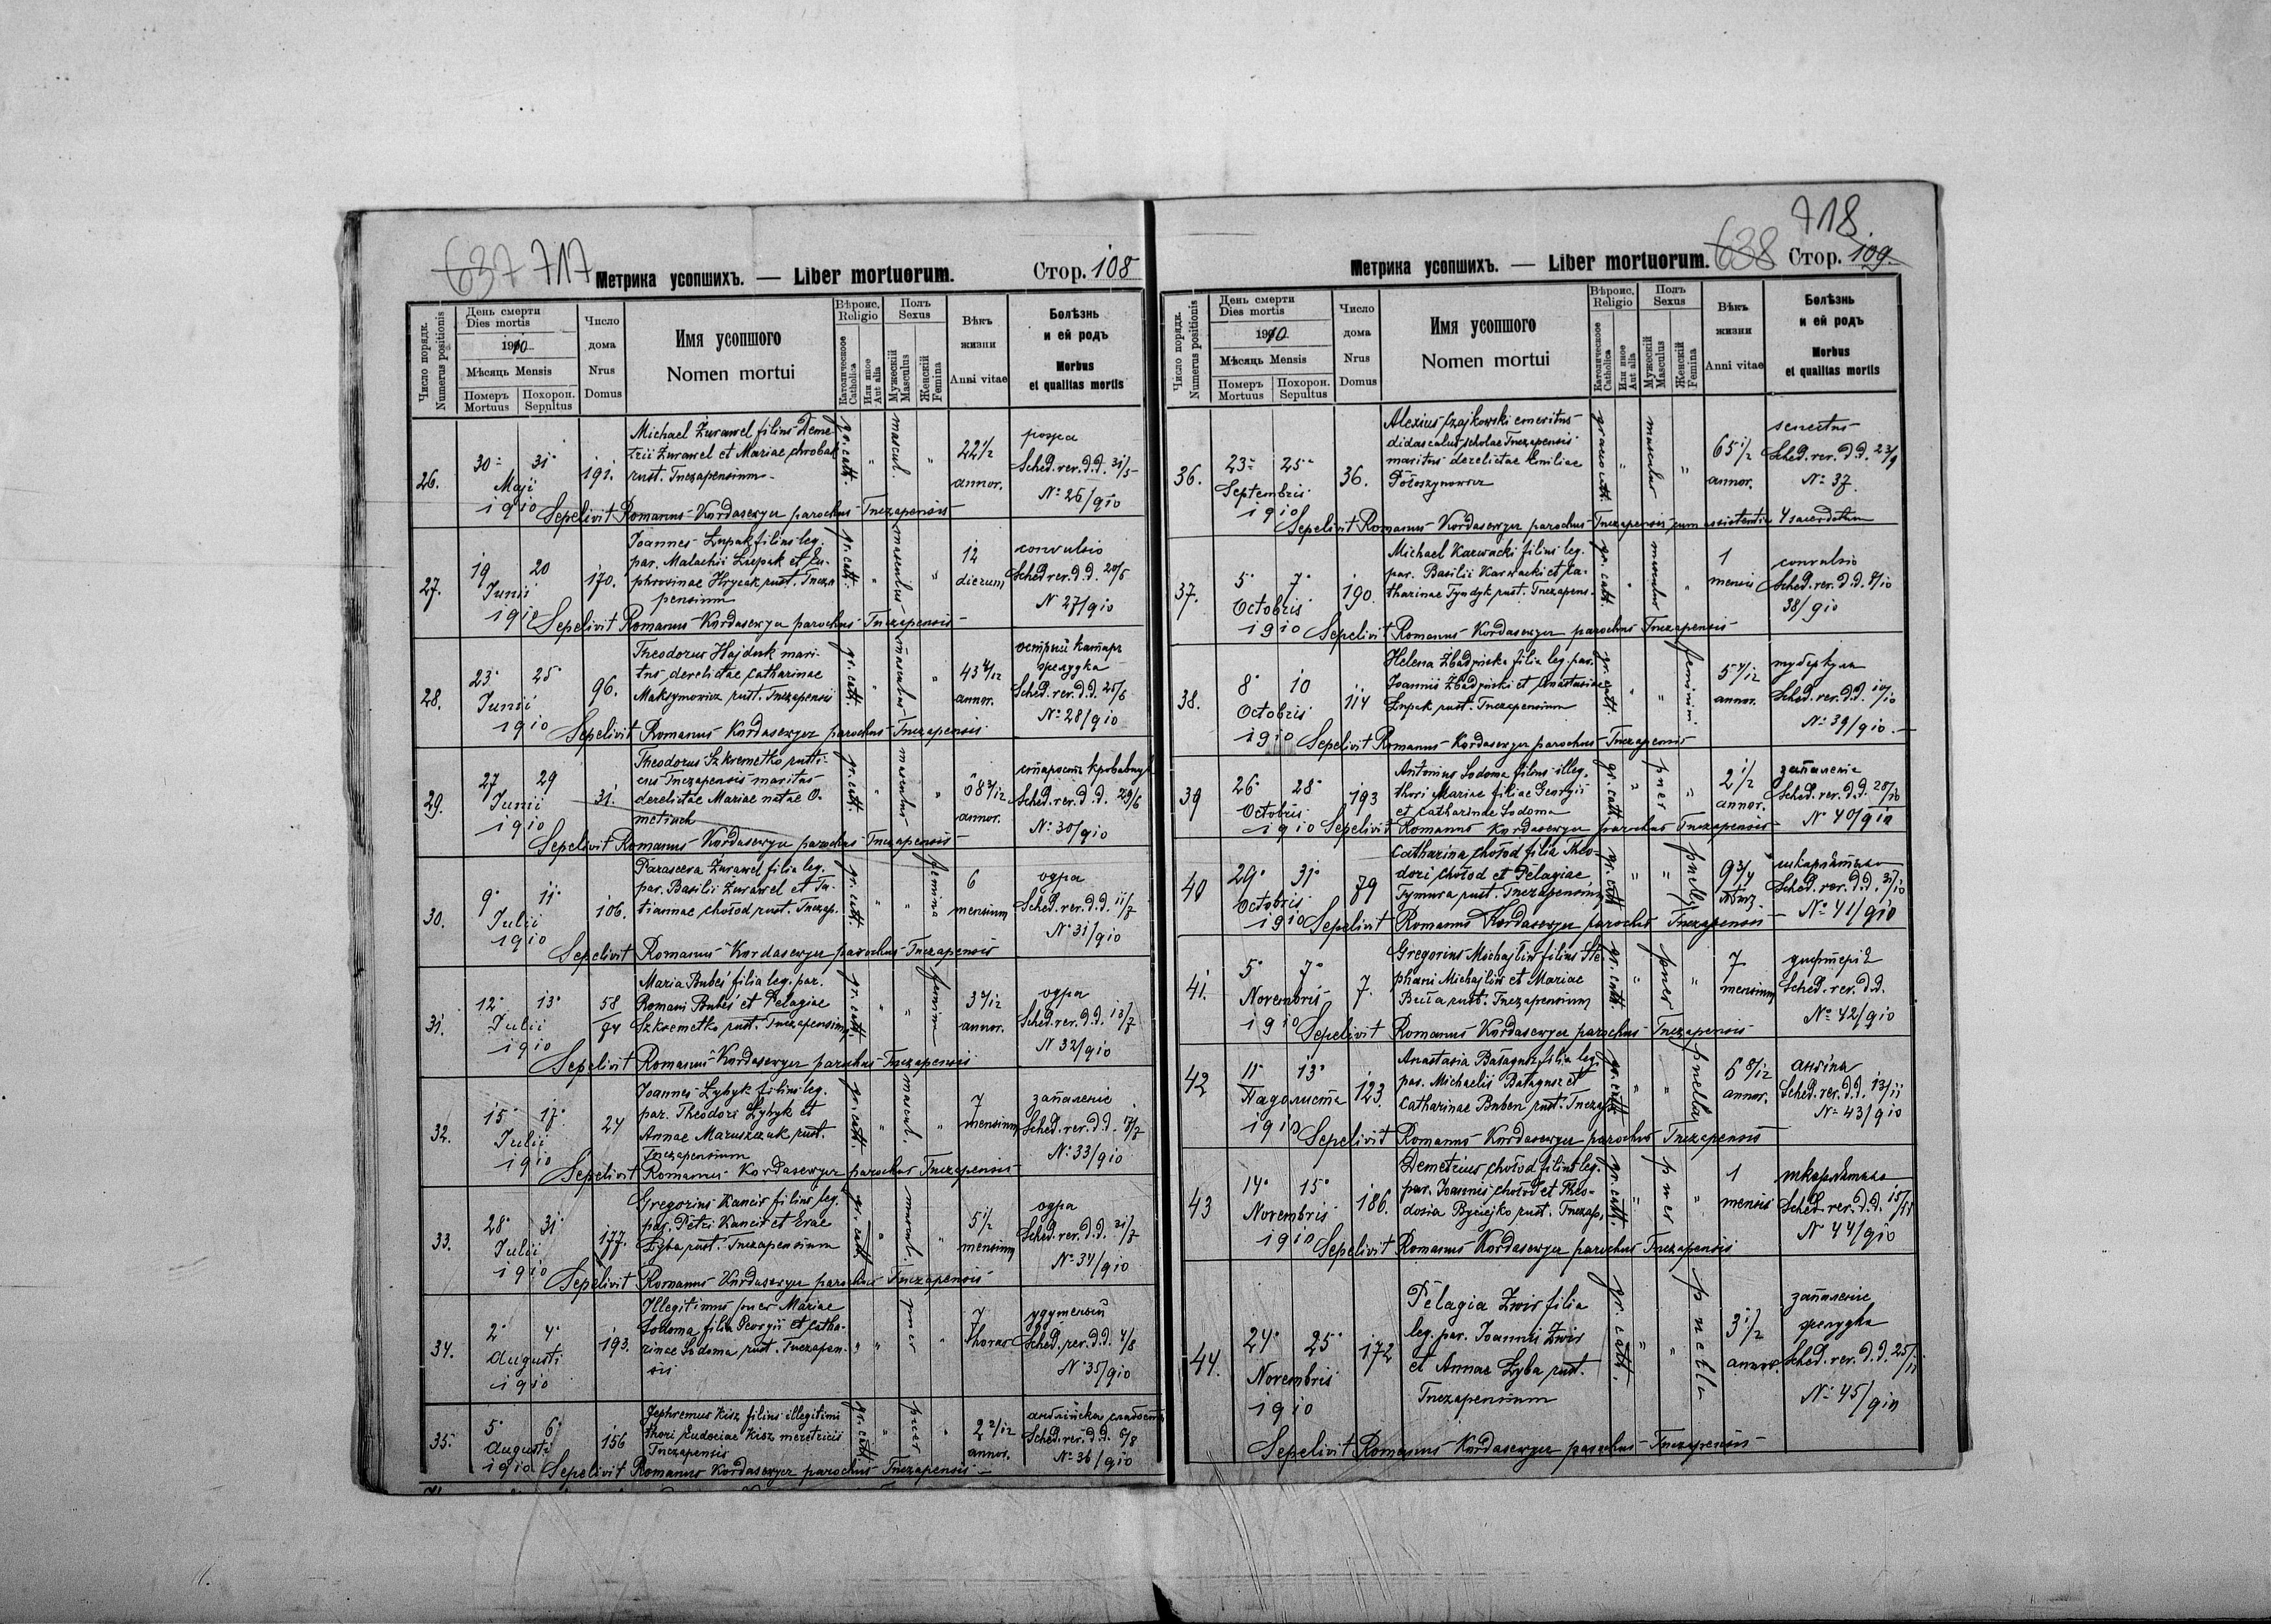 637 717 Метрика усопшихъ. — Liber mortuorum. Стор. 108
Число порядк. Numerus positionis
День смерти Dies mortis
1910
Мѣсяць Mensis
Померъ Mortuus
Похорон. Sepultus
Число дома Nrus Domus
Имя усопшого Nomen mortui
Вѣроис. Religio
Католическое Catholica
Или иное Aut alia
Полъ Sexus
Мужескій Masculus
Женскій Femina
Вѣкъ жизни Anni vitae
Болѣзнь и ей родъ Morbus et qualitas mortis
26. 30 31 Maji 1910 191.
Michael Żurawel filius Deme-
trii Żurawel et Mariae Chrobak
rust. Tnczapensium
gr. cath. " mascul. " 22 1/2 annor.
рожа
Sched. rer. d. d. 31/5
No 26/910
Sepelivit Romanus Kordasewycz parochus Tnczapensis
27. 19 20 Junii 1910 170.
Joannes Łupak filius leg.
par. Malachii Łupak et Eu-
phrosinae Hrycak rust. Tncza-
pensium
gr. cath. " masculus " 12 dierum
convulsio
Sched. rer. d. d. 20/6
N 27/910
Sepelivit Romanus Kordasewycz parochus Tnczapensis
28. 23 25 Junii 1910 96.
Theodorus Hajduk mari-
tus derelictae Catharinae
Maksymowicz rust. Tnczapensis
gr. cath. " masculus " 43 4/12 annor.
острый катаръ
желудка
Sched. rer. d. d. 25/6
No 28/910
Sepelivit Romanus Kordasewycz parochus Tnczapensis
29. 27 29 Junii 1910 31.
Theodorus Szkremetko rusti-
cus Tnczapensis maritus
derelictae Mariae natae O-
metiuch
gr. cath. " masculus " annor.
старость
Sched. rer. d. d. 29/6
No 30/910
Sepelivit Romanus Kordasewycz parochus Tnczapensis
30. 9 11 Julii 1910 106.
Parasceva Żurawel filia leg.
par. Basilii Żurawel et Ta-
tiannae Chołod rust. Tnczap.
gr. cath. " " femina 6 mensium
одра
Sched. rer. d. d. 11/7
No 31/910
Sepelivit Romanus Kordasewycz parochus Tnczapensis
31. 12 13 Julii 1910 58/94
Maria Bubeś filia leg. par.
Romani Bubeś et Pelagiae
Szkremetko rust. Tnczapensium
gr. cath. " " femina annor.
одра
Sched. rer. d. d. 13/7
N 32/910
Sepelivit Romanus Kordasewycz parochus Tnczapensis
32. 15 17 Julii 1910 24
Joannes Łybyk filius leg.
par. Theodori Łybyk et
Annae Maruszczak rust.
Tnczapensium
gr. cath. " mascul. " 7 mensium
запаленіе
Sched. rer. d. d. 17/7
No 33/910
Sepelivit Romanus Kordasewycz parochus Tnczapensis
33. 28 31 Julii 1910 177.
Gregorius Kancir filius leg.
par. Petri Kancir et Evae
Łyba rust. Tnczapensium
gr. cath. " mascul. " 5 1/2 mensium
одра
Sched. rer. d. d. 31/7
No 34/910
Sepelivit Romanus Kordasewycz parochus Tnczapensis
34. 2 4 Augusti 1910 193.
Illegitimus puer Mariae
Sodoma filia Georgii et Catha-
rinae Sodoma rust. Tnczapen-
sis
" " puer " 7 horas
Sched. rer. d. d. 4/8
N 35/910
35. 5 6 Augusti 1910 156
Jephremus Kisz filius illegitimi
thori Eudociae Kisz meretricis
Tnczapensis
gr. cath. " puer " 2 2/12 annor.
англійска слабость
Sched. rer. d. d. 6/8
No 36/910
Sepelivit Romanus Kordasewycz parochus Tnczapensis
Метрика усопшихъ. — Liber mortuorum. 638 718 Стор. 109
Число порядк. Numerus positionis
День смерти Dies mortis
1910
Мѣсяць Mensis
Померъ Mortuus
Похорон. Sepultus
Число дома Nrus Domus
Имя усопшого Nomen mortui
Вѣроис. Religio
Католическое Catholica
Или иное Aut alia
Полъ Sexus
Мужескій Masculus
Женскій Femina
Вѣкъ жизни Anni vitae
Болѣзнь и ей родъ Morbus et qualitas mortis
36. 23 25 Septembris 1910 36.
Alexius Czajkowski emeritus
didascalus scholae Tnczapensis
maritus derelictae Emiliae
Połoszynowicz
graeco cath. " masculus " 65 1/2 annor.
senectus
Sched. rer. d. d. 23/9
No 37.
Sepelivit Romanus Kordasewycz parochus Tnczapensis cum assistentia 4 sacerdotum
37. 5 7 Octobris 1910 190
Michael Karwacki filius leg.
par. Basilii Karwacki et Ca-
tharinae Tyndyk rust. Tnczapens.
gr. cath. " masculus " 1 mensis
convulsio
Sched. rer. d. d. 7/10
38/910
Sepelivit Romanus Kordasewycz parochus Tnczapensis
38. 8 10 Octobris 1910 114
Helena Zbadyńska filia leg. par.
Joannis Zbadyński et Anastasiae
Łupak rust. Tnczapensium
gr. cath. " " feminini annor.
туберкула
Sched. rer. d. d. 10/10
No 39/910
Sepelivit Romanus Kordasewycz parochus Tnczapensis
39 26 28 Octobris 1910 193
Antonius Sodoma filius illeg.
thori Mariae filiae Georgii
et Catharinae Sodoma
gr. cath. " puer " 2 1/2 annor.
запаленіе
Sched. rer. d. d. 28/10
No 40/910
Sepelivit Romanus Kordasewycz parochus Tnczapensis
40 29 31 Octobris 1910 79
Catharina Chołod filia Theo-
dori Chołod et Pelagiae
Tymura rust. Tnczapensium
gr. cath. " " puella 9 3/4
шкарлятина
Sched. rer. d. d. 31/10
No 41/910
Sepelivit Romanus Kordasewycz parochus Tnczapensis
41. 5 7 Novembris 1910 7.
Gregorius Michajliw filius Ste-
phani Michajliw et Mariae
rust. Tnczapensium
gr. cath. " puer " 7 mensium
дифтерія
Sched. rer. d. d.
No 42/910
Sepelivit Romanus Kordasewycz parochus Tnczapensis
42 11 13 Падолиста 1910 123.
Anastasia Bałagusz filia leg.
par. Michaelis Bałagusz et
Catharinae Buben rust. Tnczap.
gr. cath. " " puella 6 8/12 annor.
ангіна
Sched. rer. d. d. 13/11
No 43/910
Sepelivit Romanus Kordasewycz parochus Tnczapensis
43 14 15 Novembris 1910 186.
Demetrius Chołod filius leg.
par. Joannis Chołod et Theo-
dosia rust. Tnczap.
gr. cath. " puer " 1 mensis
шкарлятина
Sched. rer. d. d. 15/11
N 44/910
Sepelivit Romanus Kordasewycz parochus Tnczapensis
44. 24 25 Novembris 1910 172
Pelagia Zwir filia
leg. par. Joannis Zwir
et Annae Łyba rust.
Tnczapensium
gr. cath. " " puella 3 1/2 annor.
запаленіе
желудка
Sched. rer. d. d. 25/11
No 45/910
Sepelivit Romanus Kordasewycz parochus Tnczapensis